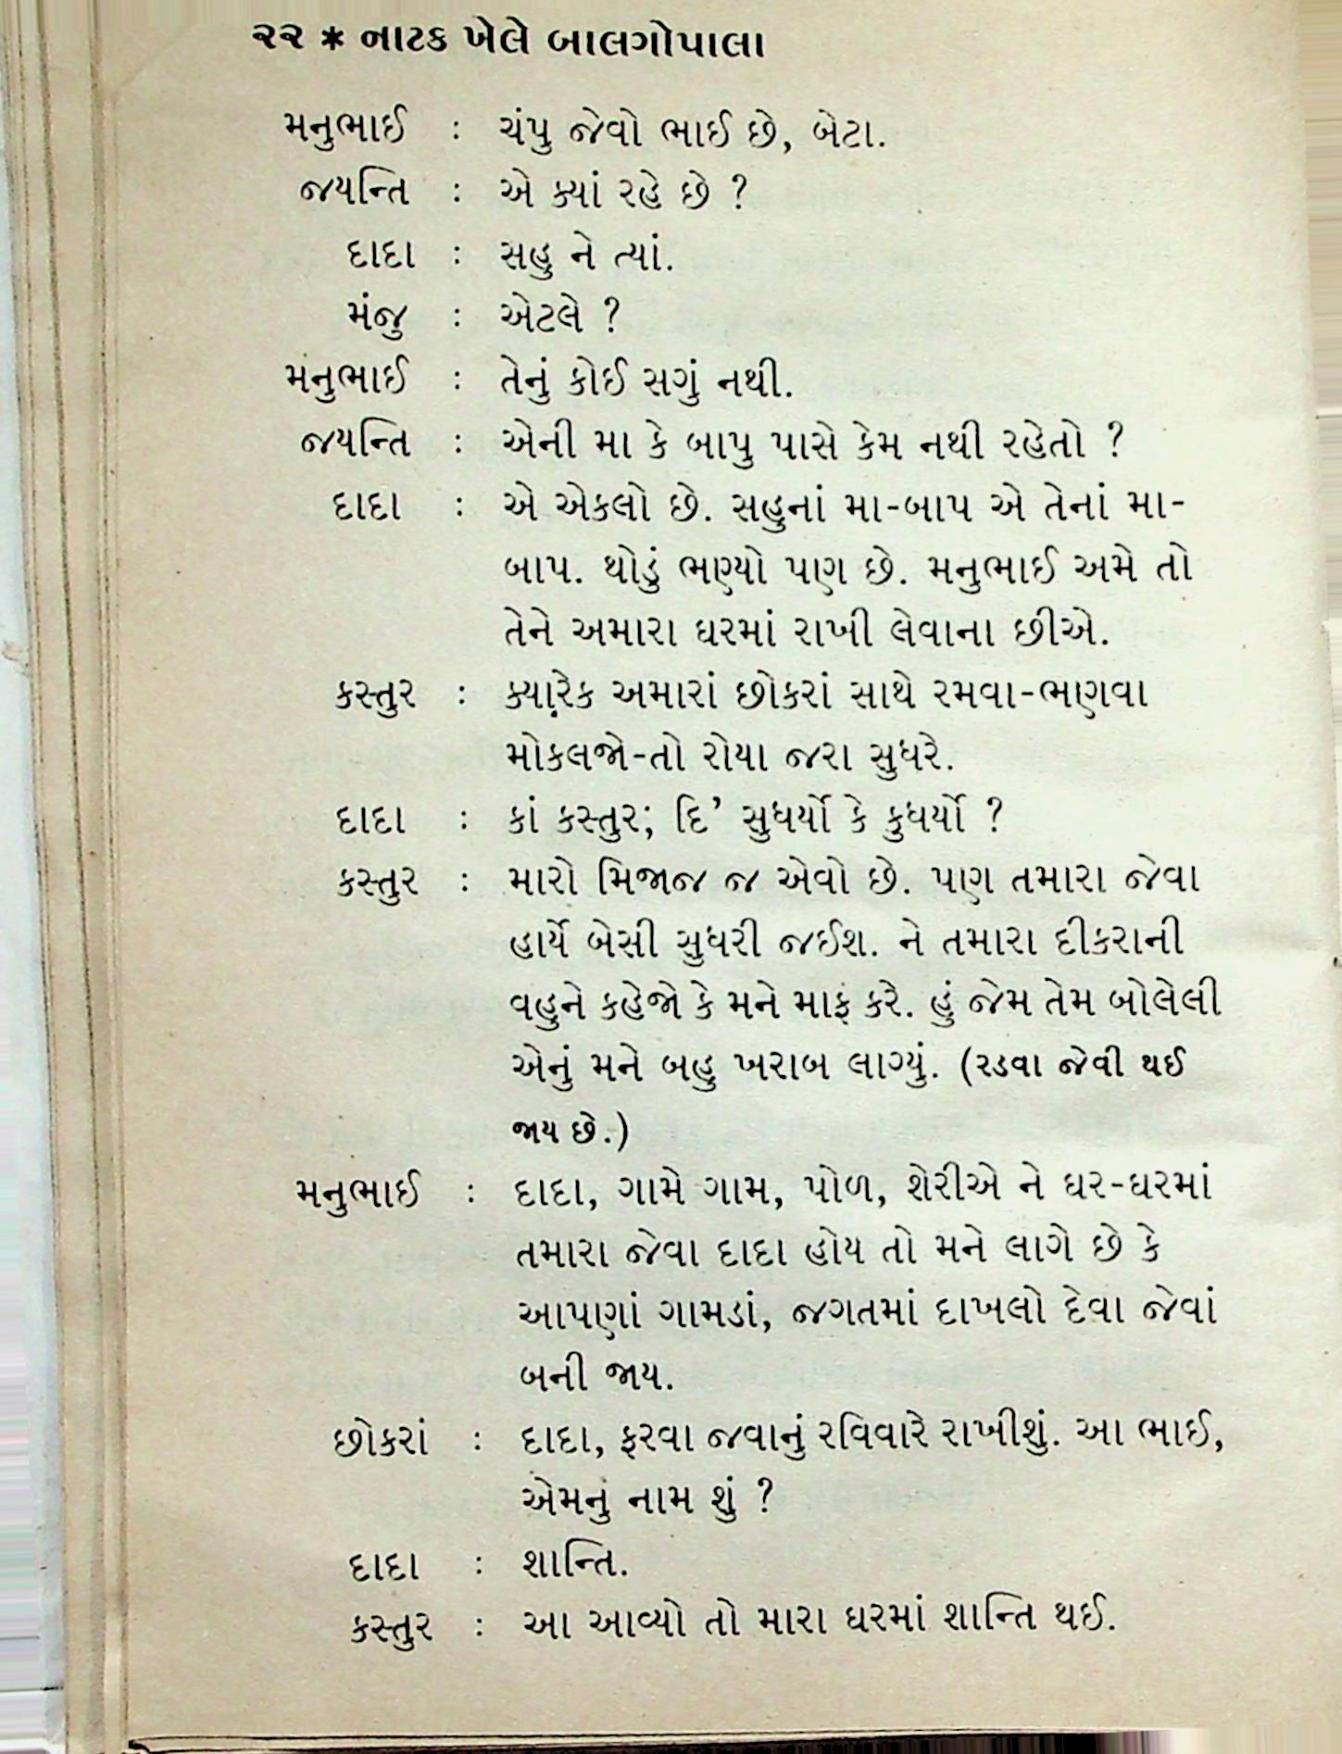 ૨૨ * નાટક ખેલે બાલગોપાલા
મનુભાઈ : ચંપુ જેવો ભાઈ છે, બેટા.
જયન્તિ : એ ક્યાં રહે છે ?
દાદા : સહુ ને ત્યાં.
મંજુ : એટલે ?
મનુભાઈ : તેનું કોઈ સગું નથી.
જયન્તિ : એની મા કે બાપુ પાસે કેમ નથી રહેતો ?
દાદા : એ એકલો છે. સહુનાં મા-બાપ એ તેનાં મા-
બાપ. થોડું ભણ્યો પણ છે. મનુભાઈ અમે તો
તેને અમારા ઘરમાં રાખી લેવાના છીએ.
કસ્તુર : ક્યારેક અમારાં છોકરાં સાથે રમવા-ભણવા
મોકલજો-તો રોયા જરા સુધરે.
દાદા : કાં કસ્તુર; દિ’ સુધર્યો કે કુધર્યો ?
કસ્તુર : મારો મિજાજ જ એવો છે. પણ તમારા જેવા
હાર્યે બેસી સુધરી જઈશ. ને તમારા દીકરાની
વહુને કહેજો કે મને માફ કરે. હું જેમ તેમ બોલેલી
એનું મને બહુ ખરાબ લાગ્યું. (રડવા જેવી થઈ
જાય છે.)
મનુભાઈ : દાદા, ગામે ગામ, પોળ, શેરીએ ને ઘર-ઘરમાં
તમારા જેવા દાદા હોય તો મને લાગે છે કે
આપણાં ગામડાં, જગતમાં દાખલો દેવા જેવાં
બની જાય.
છોકરાં : દાદા, ફરવા જવાનું રવિવારે રાખીશું. આ ભાઈ,
એમનું નામ શું ?
દાદા : શાન્તિ.
કસ્તુર : આ આવ્યો તો મારા ઘરમાં શાન્તિ થઈ.